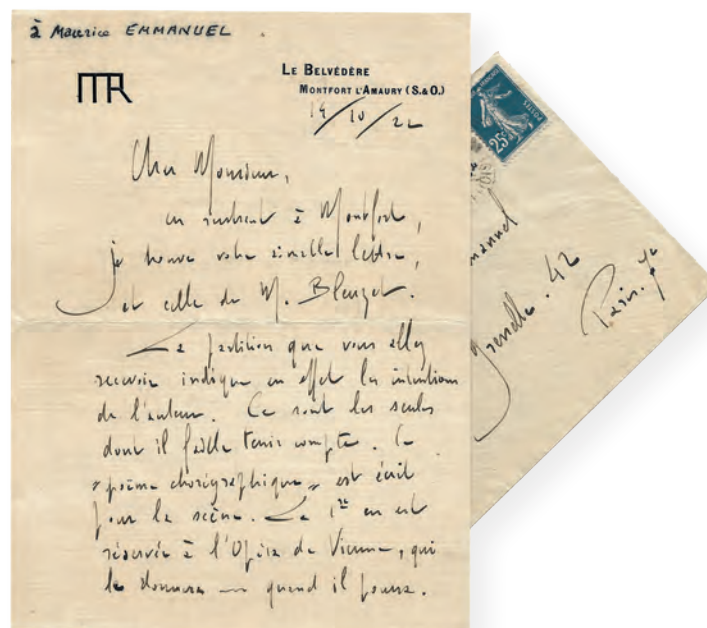 à Maurice EMMANUEL.
MR
LE BELVÉDÈRE
MONTFORT L'AMAURY (S.&O.)
14/10/22
Cher Monsieur,
en rentrant à Montfort,
je trouve votre aimable lettre,
et celle de M. Bleuzet.
La partition que vous allez
recevoir indique en effet les intentions
de l'auteur. Ce sont les seules
dont il faille tenir compte. Ce
"poème chorégraphique" est écrit
pour la scène. La 1re en est
réservée à l'Opéra de Vienne, qui
la donnera — quand il pourra.
25c
POSTES
manuel
Grenelle. 42
Paris. 7e